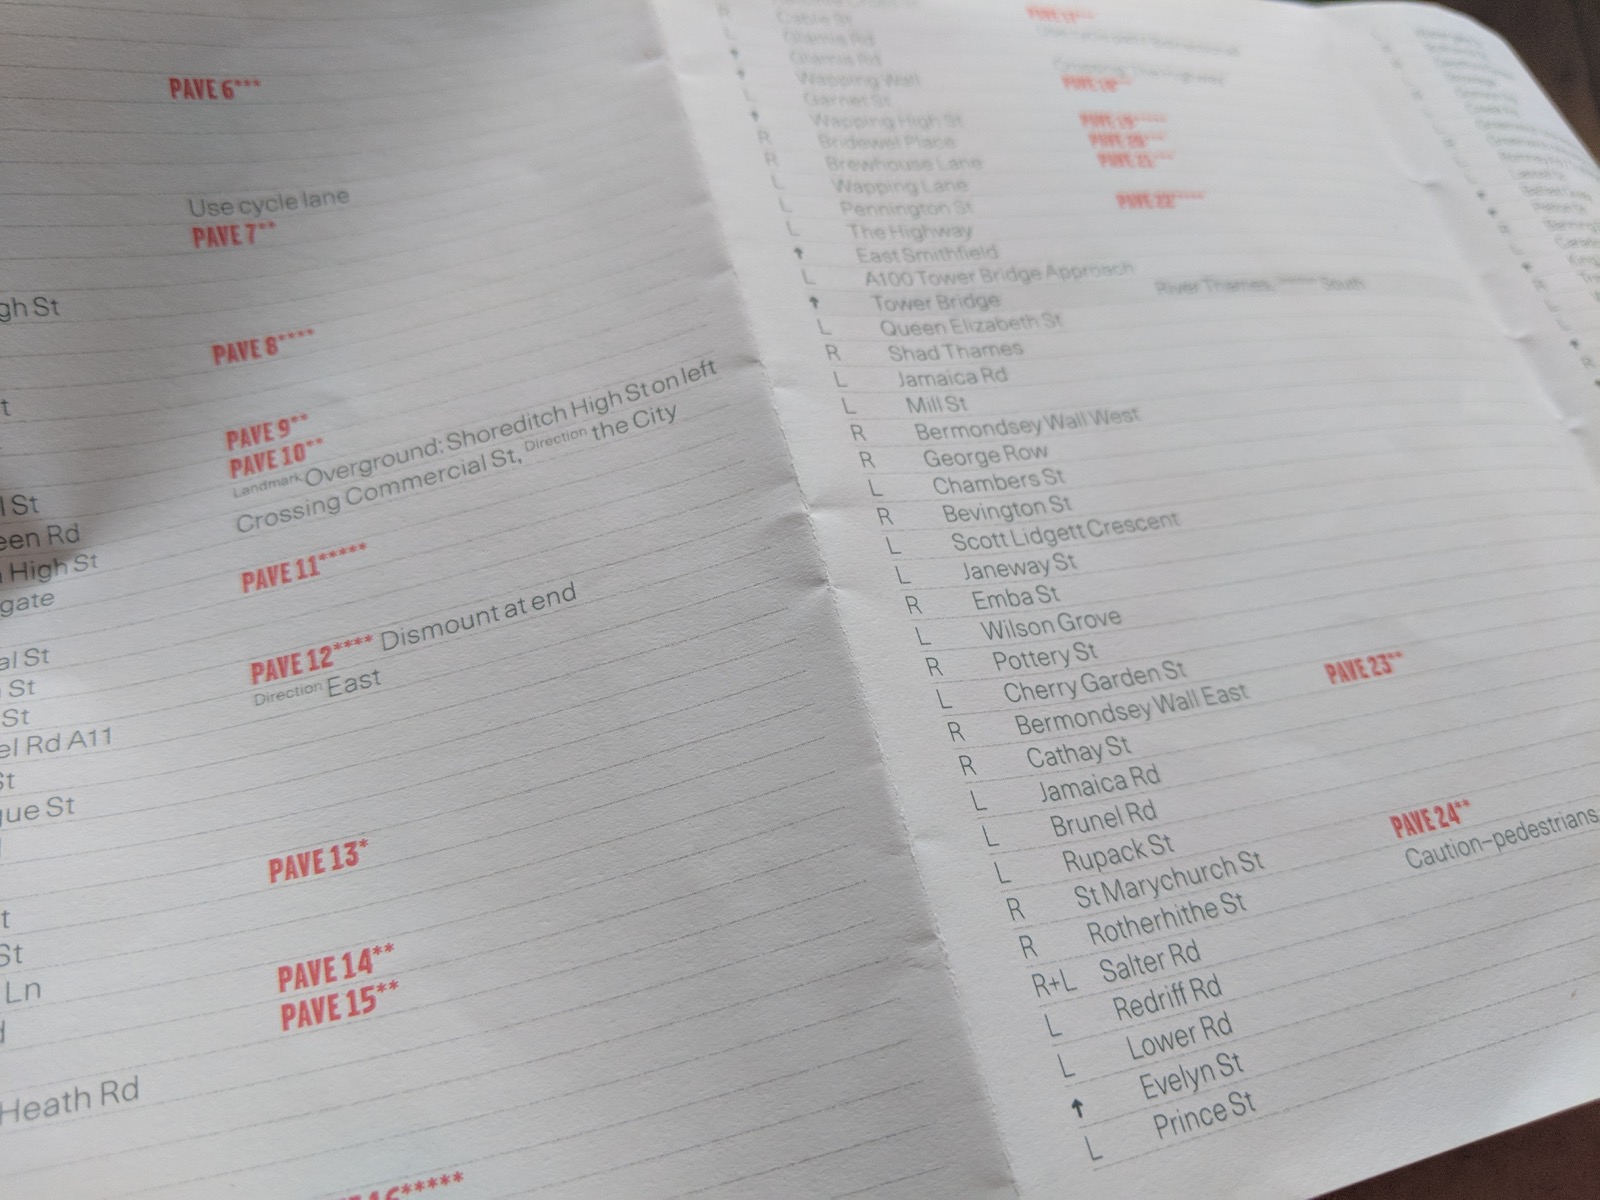 PAVE 6***
Use cycle lane
PAVE 7**
gh St
PAVE 8****
t
PAVE 9**
PAVE 10**
Landmark Overground: Shoreditch High St on left
l St
Crossing Commercial St, Direction the City
een Rd
High St
PAVE 11*****
gate
al St
PAVE 12**** Dismount at end
St
Direction East
St
el Rd A11
St
gue St
PAVE 13*
t
St
PAVE 14**
Ln
PAVE 15**
d
Heath Rd
R Cable St
L Glamis Rd
↑ Glamis Rd
↑ Wapping Wall
L Garnet St
↑ Wapping High St PAVE 19*****
R Bridewel Place PAVE 20***
R Brewhouse Lane PAVE 21***
L Wapping Lane
L Pennington St PAVE 22*****
L The Highway
↑ East Smithfield
L A100 Tower Bridge Approach
↑ Tower Bridge River Thames, South
L Queen Elizabeth St
R Shad Thames
L Jamaica Rd
L Mill St
R Bermondsey Wall West
R George Row
L Chambers St
R Bevington St
L Scott Lidgett Crescent
L Janeway St
R Emba St
L Wilson Grove
R Pottery St
L Cherry Garden St
R Bermondsey Wall East PAVE 23**
R Cathay St
L Jamaica Rd
L Brunel Rd
L Rupack St
R St Marychurch St PAVE 24**
R Rotherhithe St Caution-pedestrians
R+L Salter Rd
L Redriff Rd
L Lower Rd
↑ Evelyn St
L Prince St